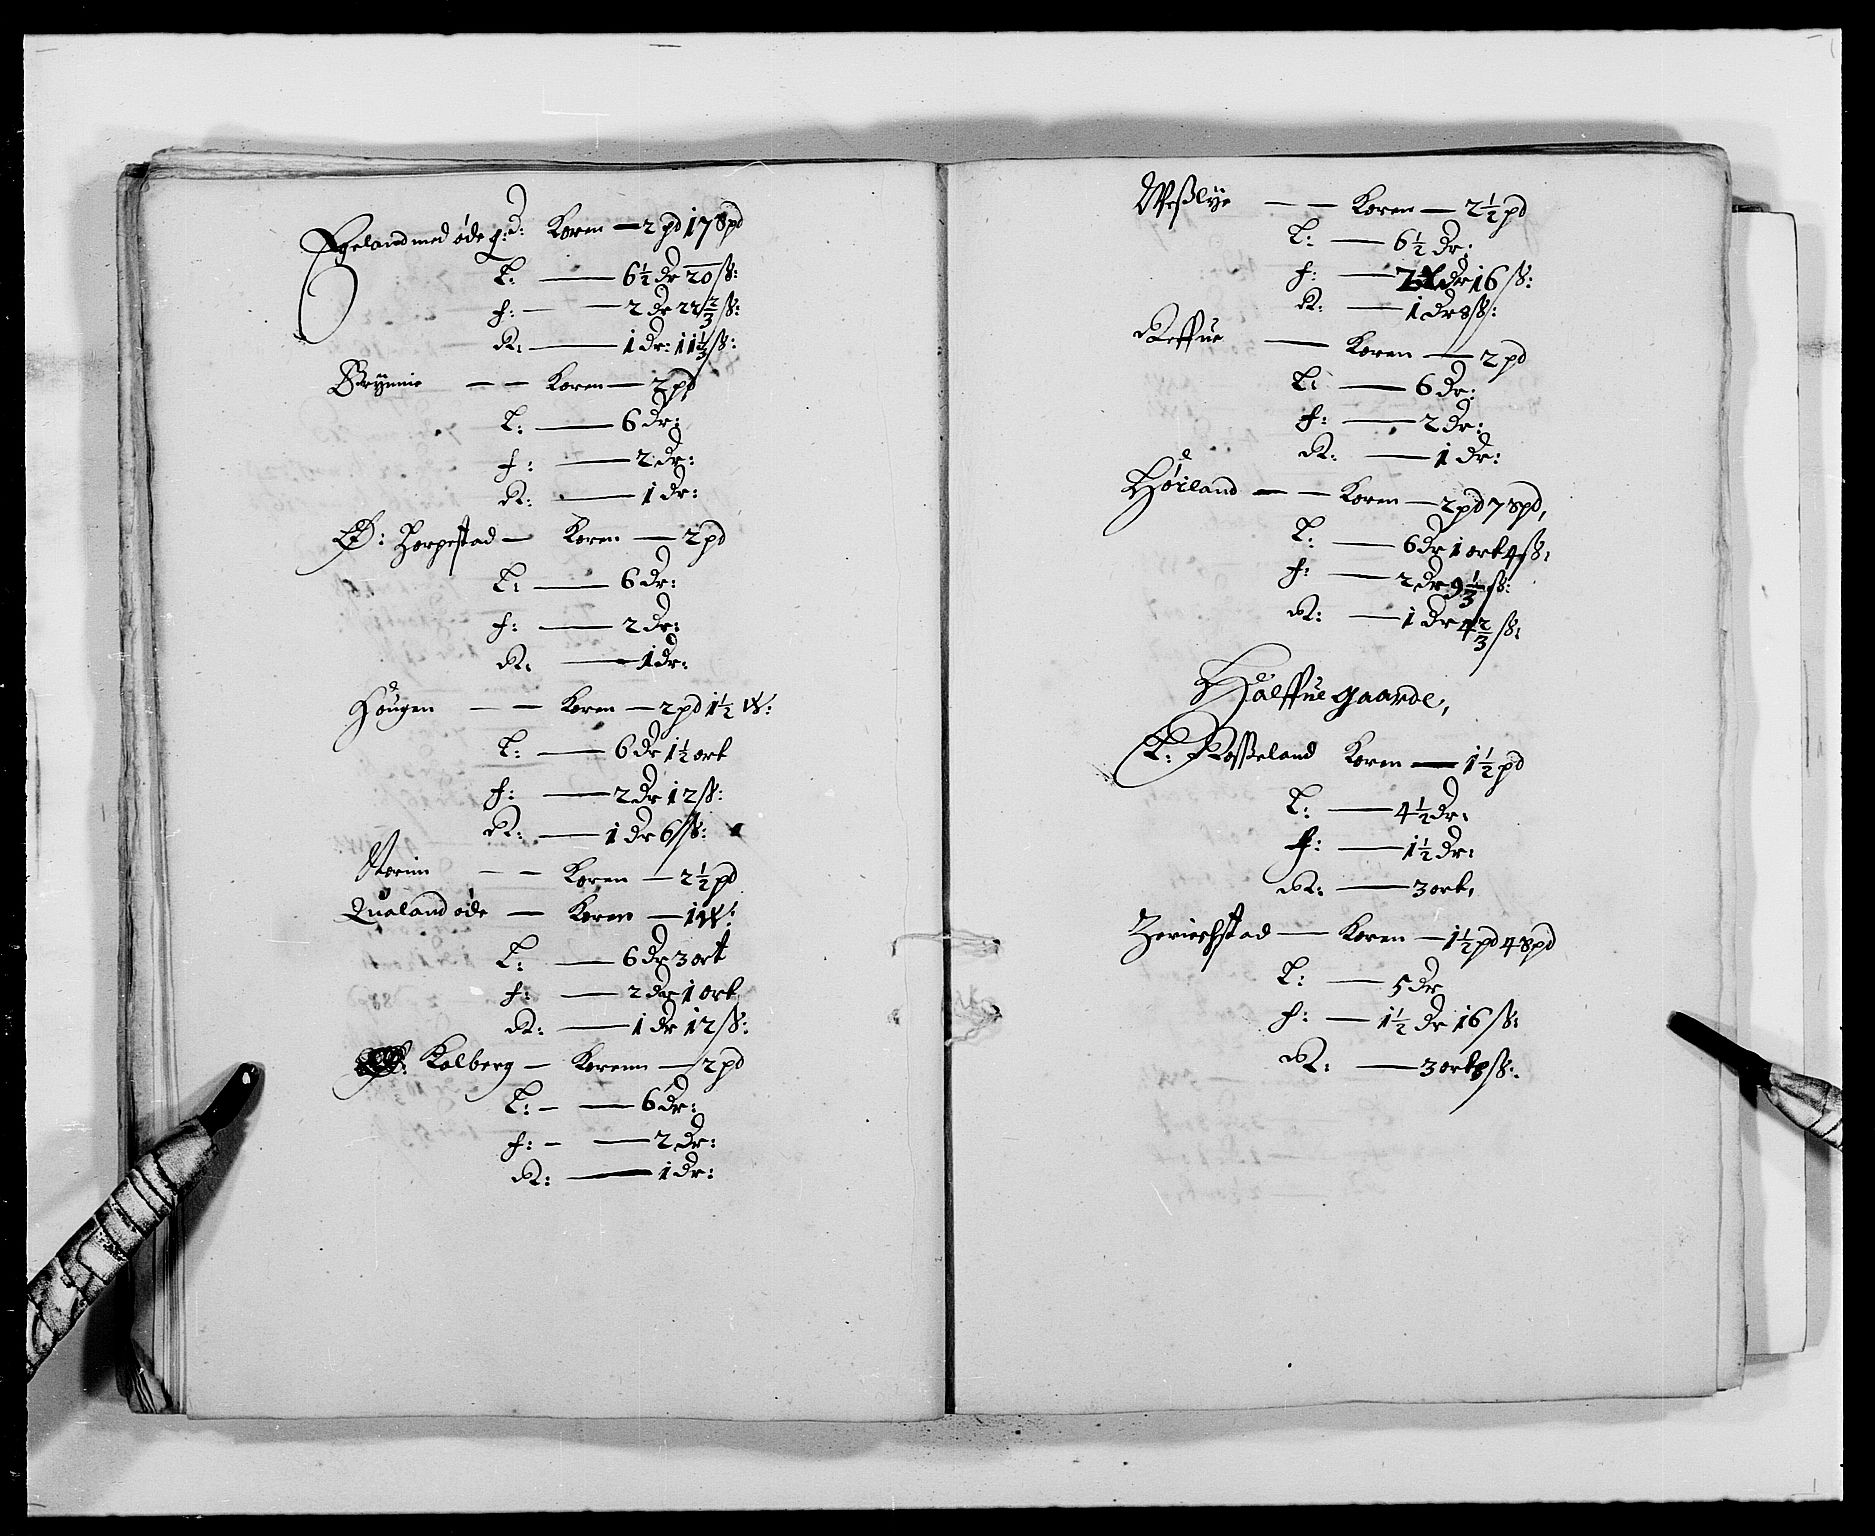 Egeland med øde g:d: Koren — 2 pd 17 8pd
L: — 6½ dr 20 ß:
f: — 2 dr 22⅔ ß:
R: — 1 dr: 11⅓ ß:
Brynnie — — Koren — 2 pd
L: — 6 dr:
f: — 2 dr:
R: — 1 dr:
Ø: Horpestad — Koren — 2 pd
L: — 6 dr:
f: — 2 dr:
R: — 1 dr:
Hougen — — Koren — 2 pd 1½ W:
L: — 6 dr 1½ ort
f: — 2 dr 12 ß:
R: — 1 dr 6 ß:
Norim — — Koren — 2½ pd
Qualand øde — Koren — 1 W:
L: — 6 dr 3 ort
f: — 2 dr 1 ort
R: — 1 dr 12 ß:
Kalberg — Korenn — 2 pd
L: — — 6 dr:
f: — — 2 dr:
R: — 1 dr:
Weßlye — — Koren — 2½ pd
L: — 6½ dr:
f: — 2 dr 16 ß:
R: — 1 dr 8 ß:
Reffue — Koren — 2 pd
L: — 6 dr:
f: — 2 dr:
R: — 1 dr:
Høiland — — Koren — 2 pd 7 8pd,
L: — 6 dr 1 ort 4 ß:
f: — 2 dr 9⅓ ß:
R: — 1 dr 4⅔ ß:
Halffue gaarde,
L: Roßeland Koren — 1½ pd
L: — 4½ dr:
f: — 1½ dr:
R: — 3 ort,
Herichstad — Koren — 1½ pd 4 8pd
L: — 5 dr
f: — 1½ dr 16 ß:
R: — 3 ort 8 ß: